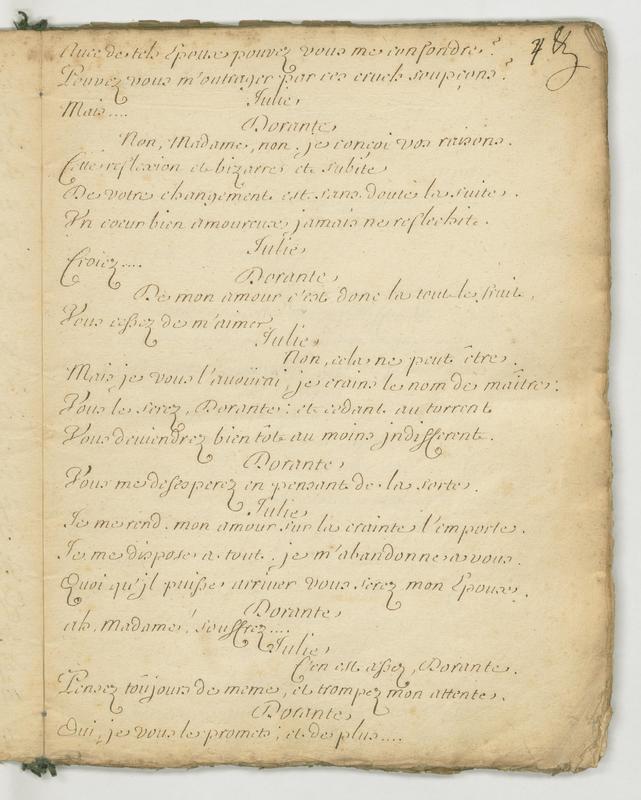 Avec de tels Epoux pouvez vous me confondre?
Pouvez vous m'outrager par ces cruels soupçons?
Julie
Mais....
Dorante
Non, Madame, non, je conçoi vos raisons.
Cette reflexion et bizarre et subite
De votre changement est sans doute la suite.
Un coeur bien amoureux jamais ne reflechit.
Julie
Croiez....
Dorante
De mon amour c'est donc la tout le fruit,
Vous cessez de m'aimer
Julie
Non, cela ne peut être.
Mais je vous l'avoürai, je crains le nom de maître:
Vous le serez, Dorante: et cedant au torrent
Vous deviendrez bientôt au moins jndifferent.
Dorante
Vous me desesperez en pensant de la sorte.
Julie
Je me rend. mon amour sur la crainte l'emporte.
Je me dispose a tout. je m'abandonne a vous.
Quoi qu'jl puisse arriver vous serez mon Epoux.
Dorante
ah, Madame, souffrez....
Julie
C'en est assez, Dorante.
Pensez toûjours de meme, et trompez mon attente.
Dorante
Oui, je vous le promets; et de plus....